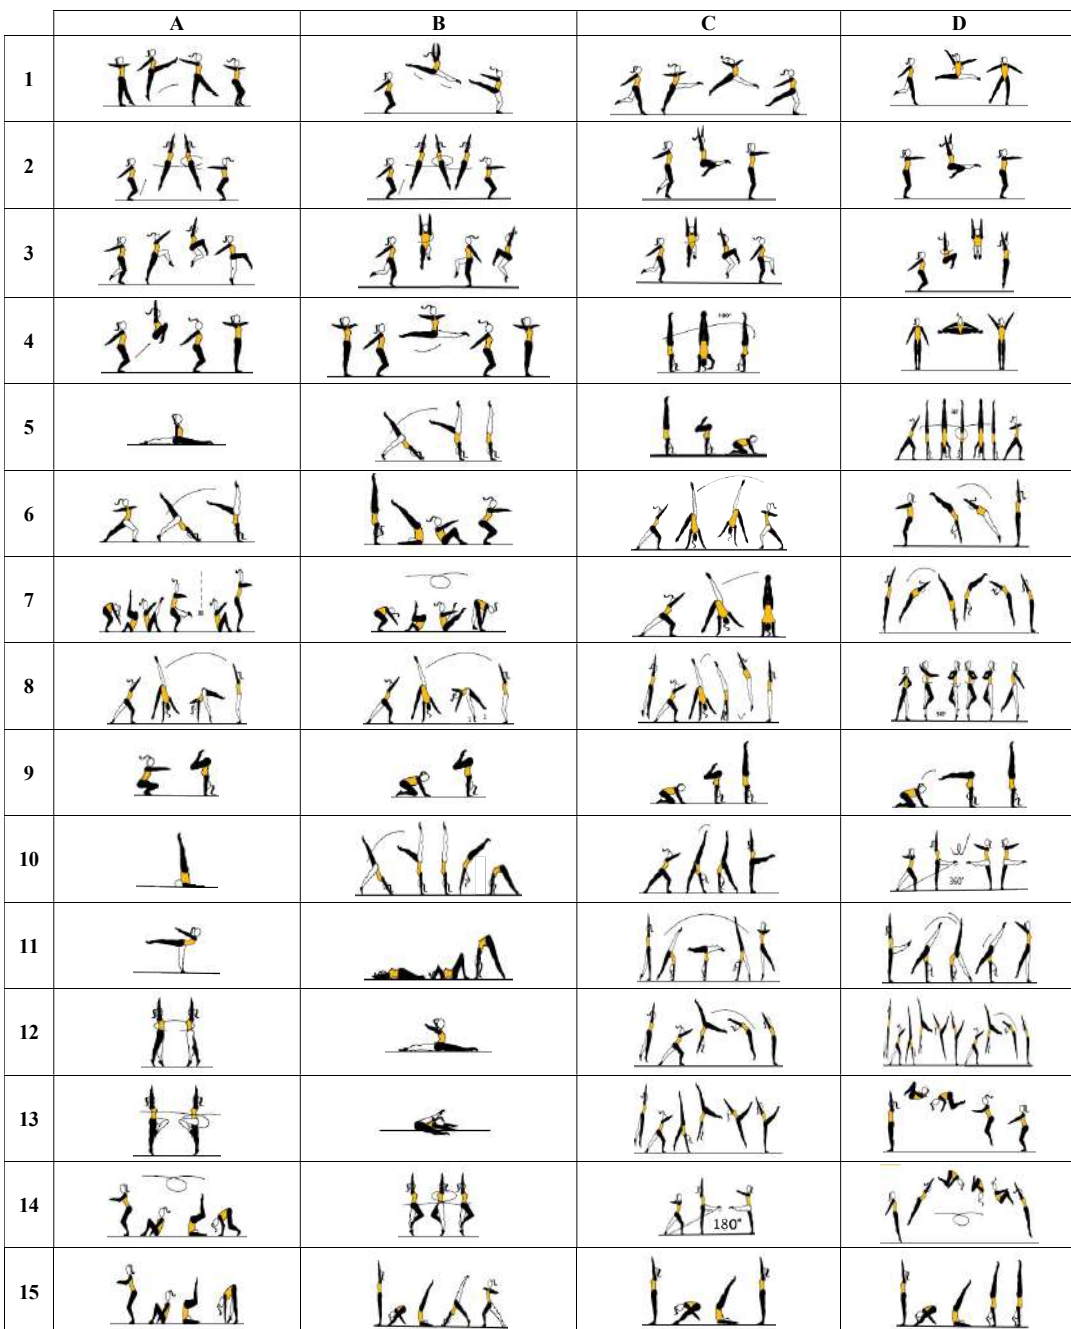 A B C D
1
2
3
4 180°
5
6
7
8
9
10 360°
11
12
13
14 180°
15